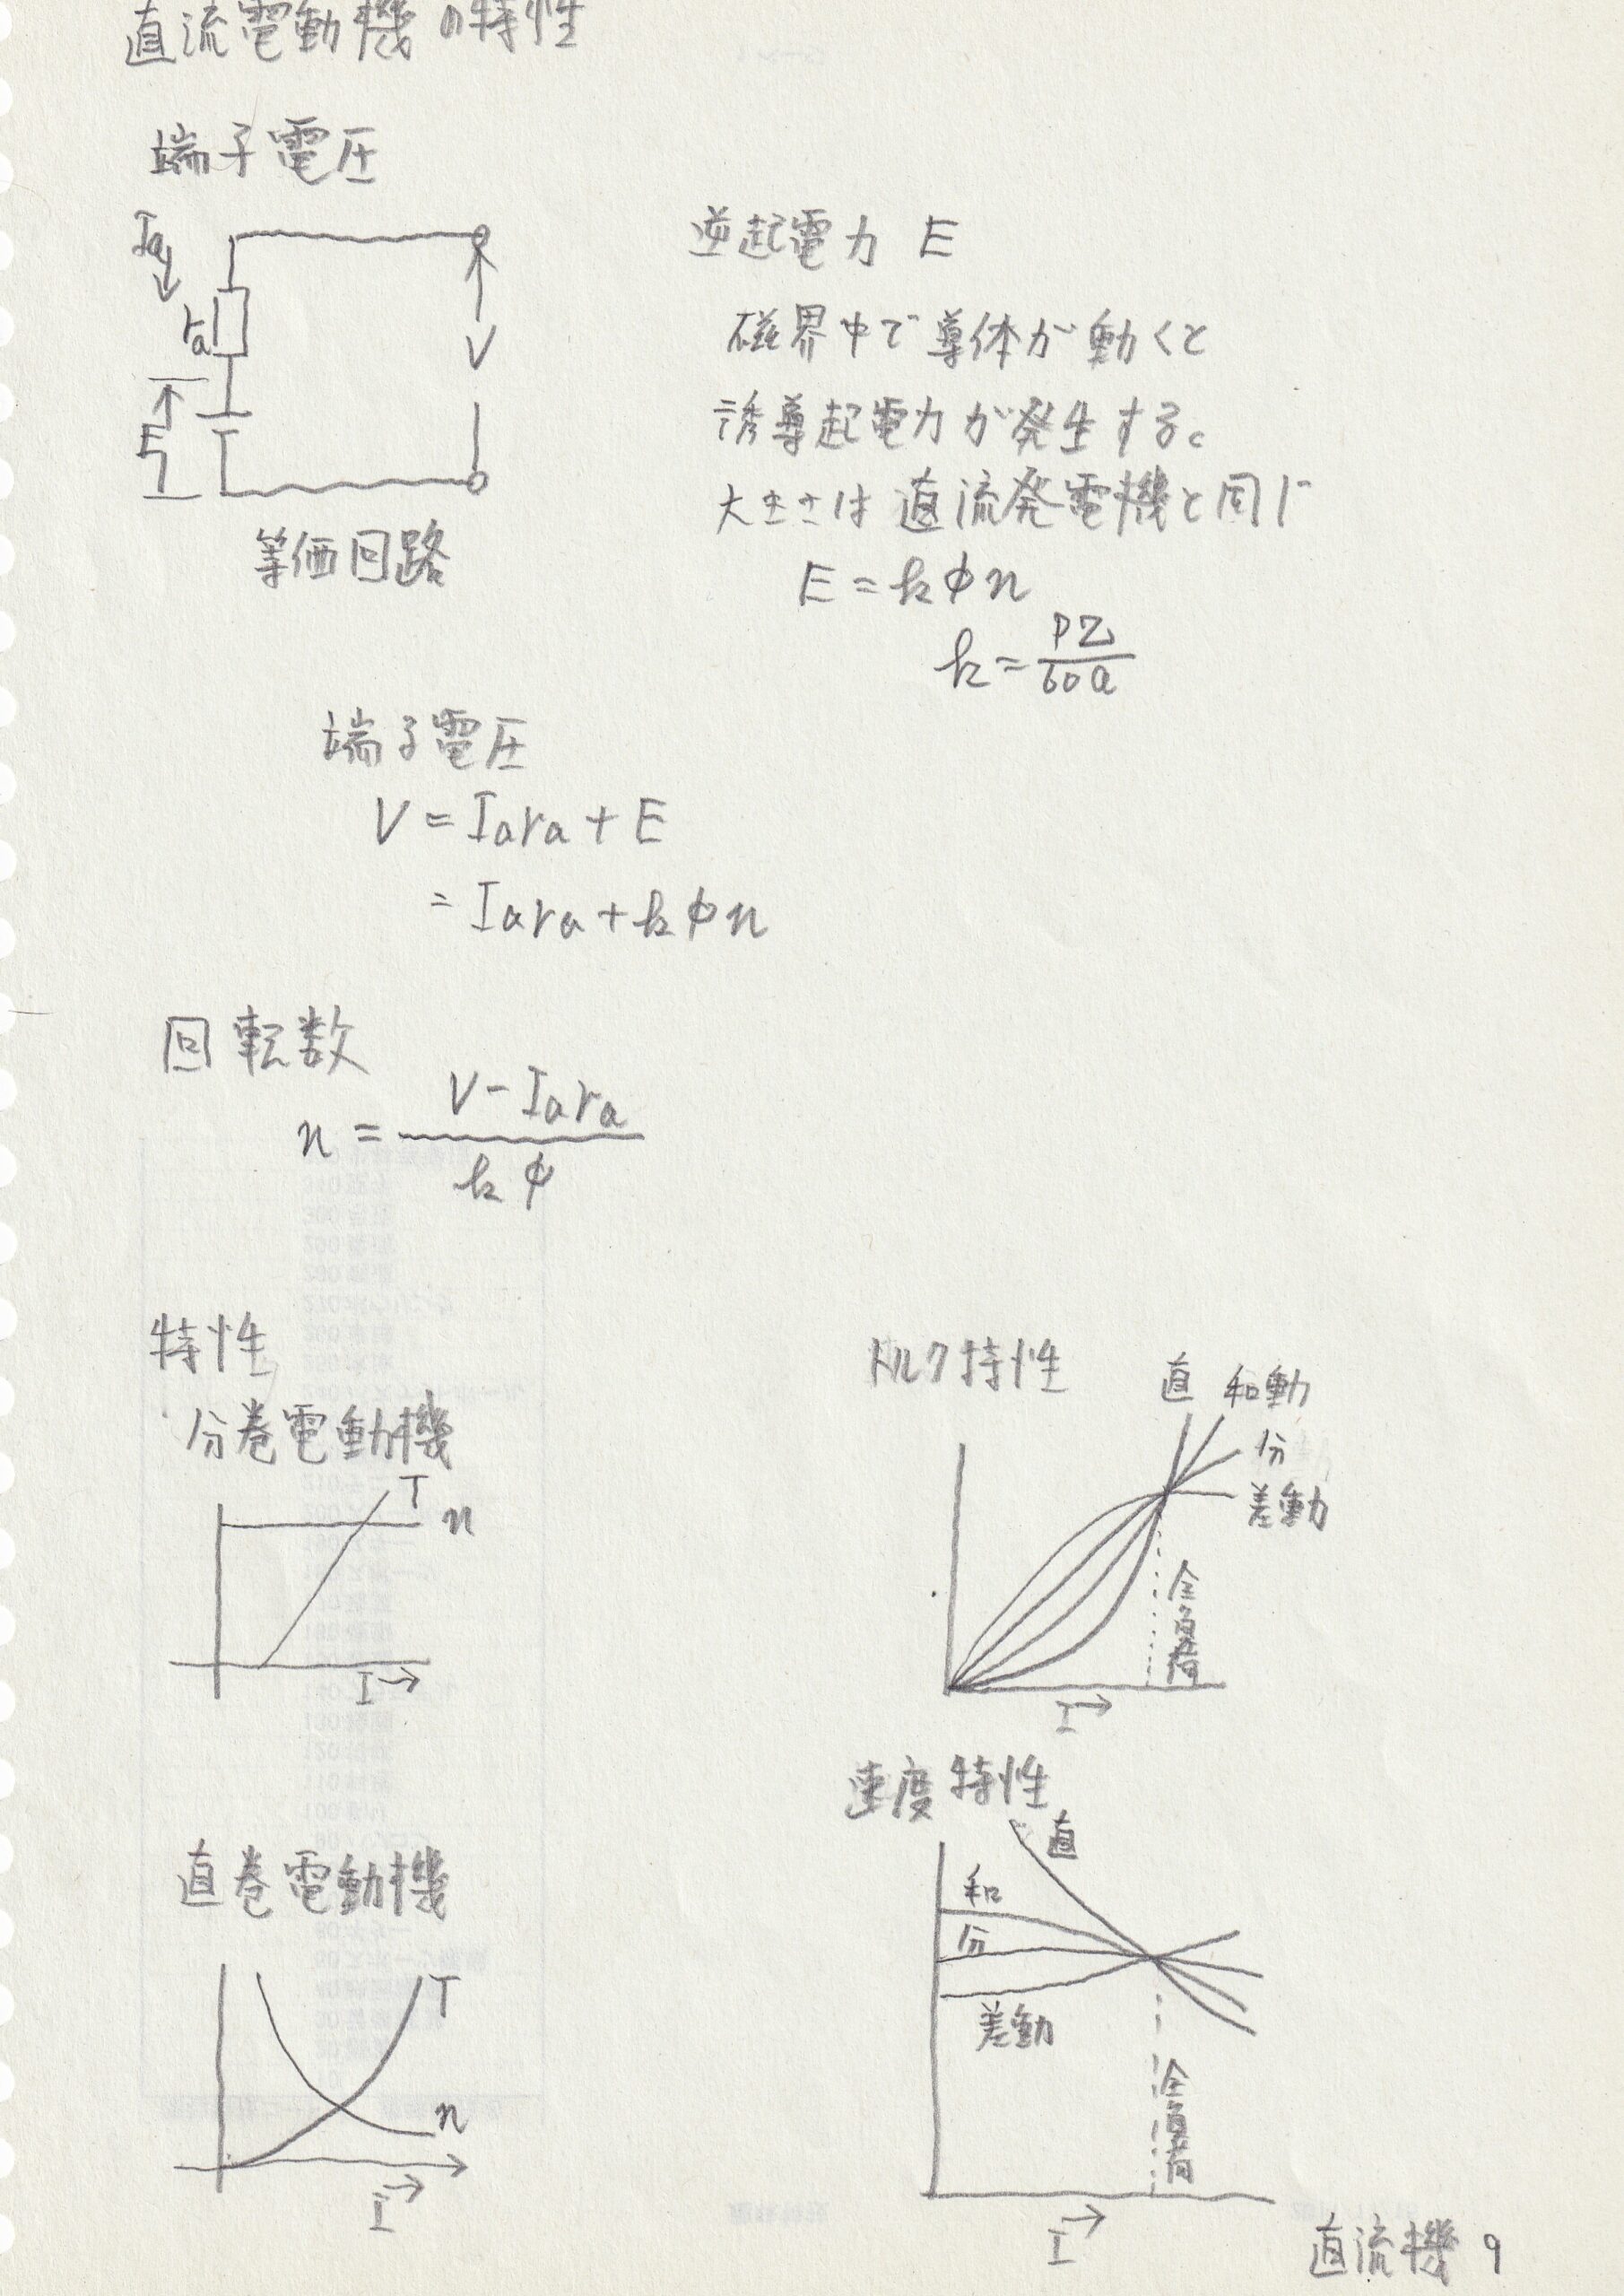 直流電動機の特性
端子電圧
Ia
ra
E
V
等価回路
逆起電力 E
磁界中で導体が動くと
誘導起電力が発生する。
大きさは直流発電機と同じ
E=kφn
k=PZ/60a
端子電圧
V=Iara+E
=Iara+kφn
回転数
n=V-Iara/kφ
特性
分巻電動機
T
n
I→
直巻電動機
T
n
I→
トルク特性
直 和動
分
差動
全負荷
I→
速度特性
直
和
分
差動
全負荷
I→
直流機 9